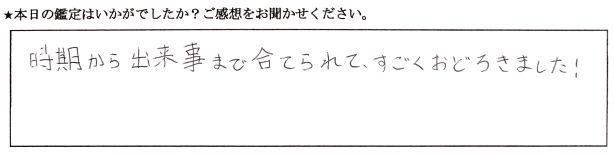 ★本日の鑑定はいかがでしたか？ご感想をお聞かせください。
時期から出来事まで合てられて、すごくおどろきました！